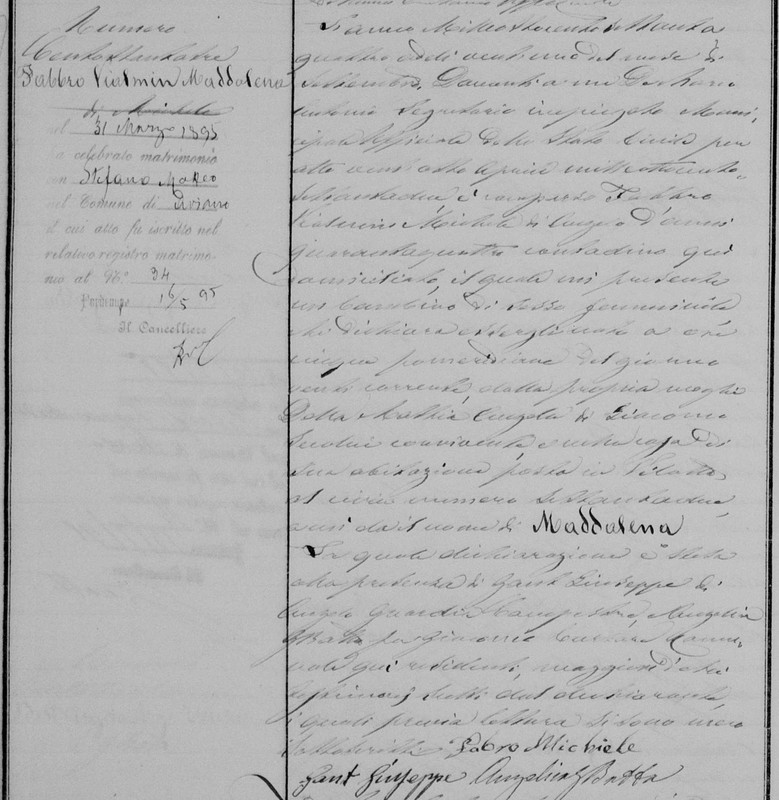 Numero
Centottantatre
Fabbro Vialmin Maddalena
di Michele
nel 31 Marzo 1895
ha celebrato matrimonio
con Stefano Marco
nel Comune di Aviano
il cui atto fu iscritto nel
relativo registro matrimo-
nio al N.° 34
Pordenone 16/5 95
Il Cancelliere
L'anno Milleottocentosettanta
quattro addì ventiuno del mese di
Settembre, Davanti a me
Antonio Segretario impiegato Muni-
cipale Ufficiale dello Stato Civile per
atto vent' otto Aprile mille ottocento
settantadue, è comparso Fabbro
Michele di Angelo d'anni
quarantaquattro contadino qui
domiciliato, il quale mi presenta
un bambino di sesso femminile
che dichiara essergli nato a ore
cinque pomeridiane del giorno
venti corrente, dalla propria moglie
Della Mattia Angela di Giacomo
convivente, nella casa di
sua abitazione posta in
al civico numero settantadue
a cui dà il nome di Maddalena
La quale dichiarazione è stata
alla presenza di Zant Giuseppe di
Angelo Guardia Campestre, Angelica
G Batta fu Giacomo Comu-
nale qui residenti, maggiori d'età
dal dichiarante,
i quali previa lettura si sono meco
sottoscritti Fabro Michiele
Zant Giuseppe Angelica G Batta